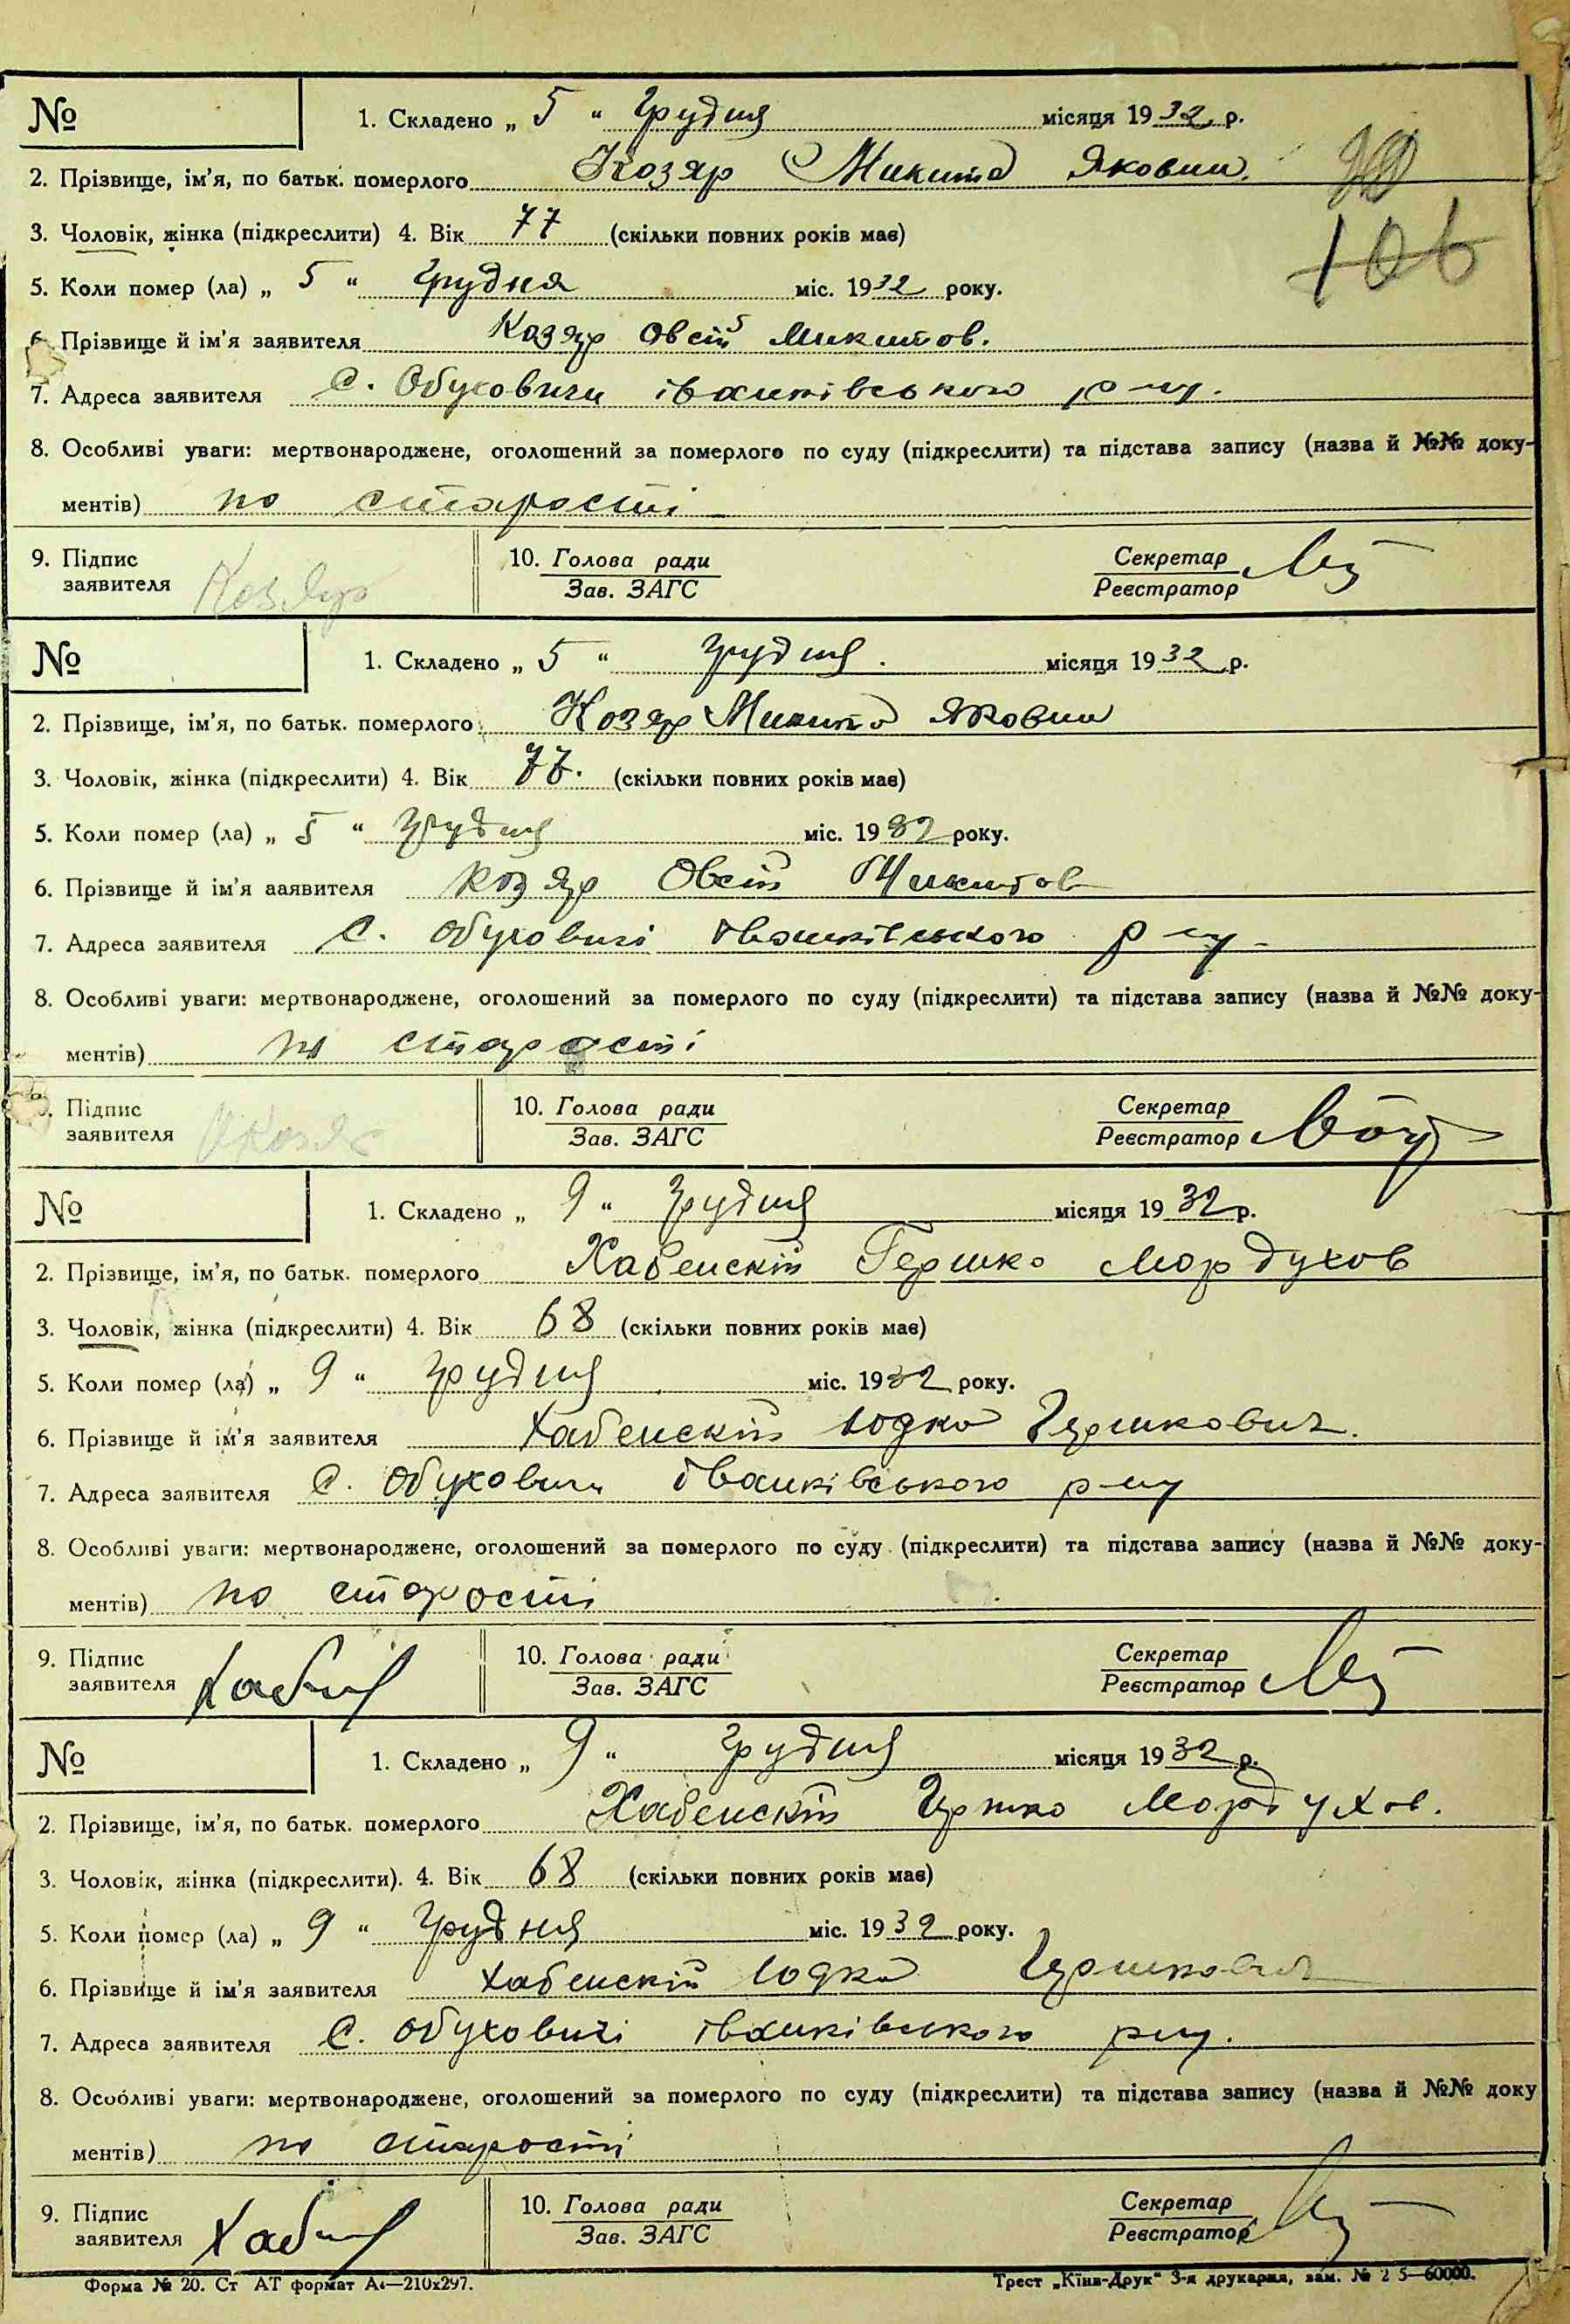 № 1. Складено „ 5 “ Грудня місяця 1932 р.
2. Прізвище, ім'я, по батьк. померлого Козяр Микита Якович.
3. Чоловік, жінка (підкреслити) 4. Вік 77 (скільки повних років має)
106
5. Коли помер (ла) „ 5 “ Грудня міс. 1932 року.
6. Прізвище й ім'я заявителя Козяр Овсій Микитов.
7. Адреса заявителя С. Обуховичи іванківського р-ну.
8. Особливі уваги: мертвонароджене, оголошений за померлого по суду (підкреслити) та підстава запису (назва й №№ доку-
ментів) по старості
9. Підпис заявителя Козяр 10. Голова ради Секретар
Зав. ЗАГС Реєстратор
№ 1. Складено „ 5 “ грудня. місяця 1932 р.
2. Прізвище, ім'я, по батьк. померлого Козяр Микита Якович
3. Чоловік, жінка (підкреслити) 4. Вік 77. (скільки повних років має)
5. Коли помер (ла) „ 5 “ грудня міс. 1932 року.
6. Прізвище й ім'я ааявителя Козяр Овсій Микитов
7. Адреса заявителя С. Обуховичі іванківського р-ну.
8. Особливі уваги: мертвонароджене, оголошений за померлого по суду (підкреслити) та підстава запису (назва й №№ доку-
ментів) по старості
9. Підпис заявителя 10. Голова ради Секретар
Зав. ЗАГС Реєстратор
№ 1. Складено „ 9 “ грудня місяця 1932 р.
2. Прізвище, ім'я, по батьк. померлого Хабенскій Гершко Мордухов
3. Чоловік, жінка (підкреслити) 4. Вік 68 (скільки повних років має)
5. Коли помер (ла) „ 9 “ грудня міс. 1932 року.
6. Прізвище й ім'я заявителя Хабенскій Юдко Гершкович.
7. Адреса заявителя С. Обуховичи іванківського р-ну
8. Особливі уваги: мертвонароджене, оголошений за померлого по суду (підкреслити) та підстава запису (назва й №№ доку-
ментів) по старості
9. Підпис заявителя 10. Голова ради Секретар
Зав. ЗАГС Реєстратор
№ 1. Складено „ 9 “ грудня місяця 1932 р.
2. Прізвище, ім'я, по батьк. померлого Хабенскій Гершко Мордухов.
3. Чоловік, жінка (підкреслити). 4. Вік 68 (скільки повних років має)
5. Коли помер (ла) „ 9 “ Грудня міс. 1932 року.
6. Прізвище й ім'я заявителя Хабенскій Юдко Гершкович
7. Адреса заявителя С. Обуховичі іванківського р-ну.
8. Особливі уваги: мертвонароджене, оголошений за померлого по суду (підкреслити) та підстава запису (назва й №№ доку
ментів) по старості
9. Підпис заявителя 10. Голова ради Секретар
Зав. ЗАГС Реєстратор
Форма № 20. Ст АТ формат А4—210х297. Трест „Київ-Друк“ 3-я друкарня, зам. № 2 5—60000.